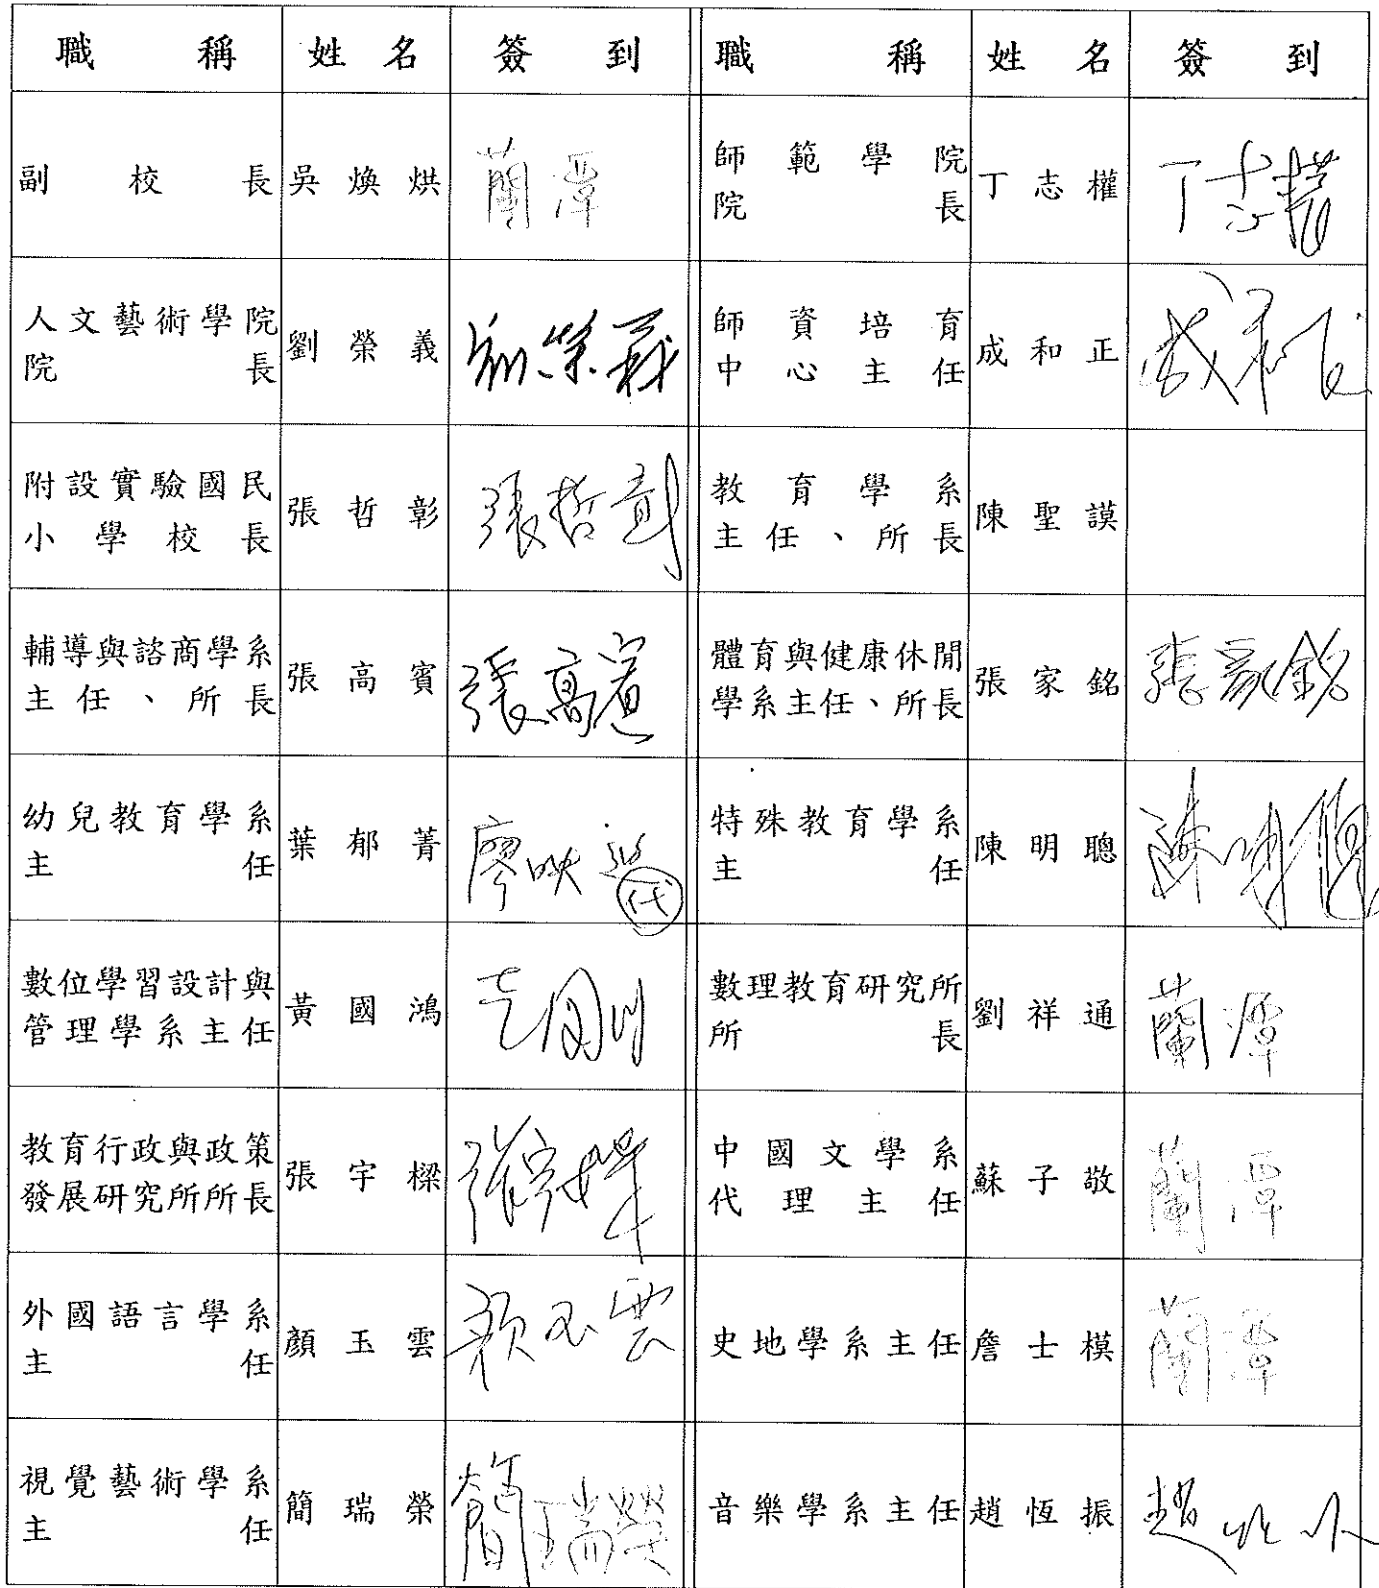 職稱 姓名 簽到 職稱 姓名 簽到
副校長 吳煥烘 蘭潭 師範學院院長 丁志權 丁志權
人文藝術學院院長 劉榮義 劉榮義 師資培育中心主任 成和正 成和正
附設實驗國民小學校長 張哲彰 張哲彰 教育學系主任、所長 陳聖謨
輔導與諮商學系主任、所長 張高賓 張高賓 體育與健康休閒學系主任、所長 張家銘 張家銘
幼兒教育學系主任 葉郁菁 廖映 代 特殊教育學系主任 陳明聰 陳明聰
數位學習設計與管理學系主任 黃國鴻 數理教育研究所所長 劉祥通 蘭潭
教育行政與政策發展研究所所長 張宇樑 張宇樑 中國文學系代理主任 蘇子敬 蘭潭
外國語言學系主任 顏玉雲 顏玉雲 史地學系主任 詹士模 蘭潭
視覺藝術學系主任 簡瑞榮 簡瑞榮 音樂學系主任 趙恆振 趙